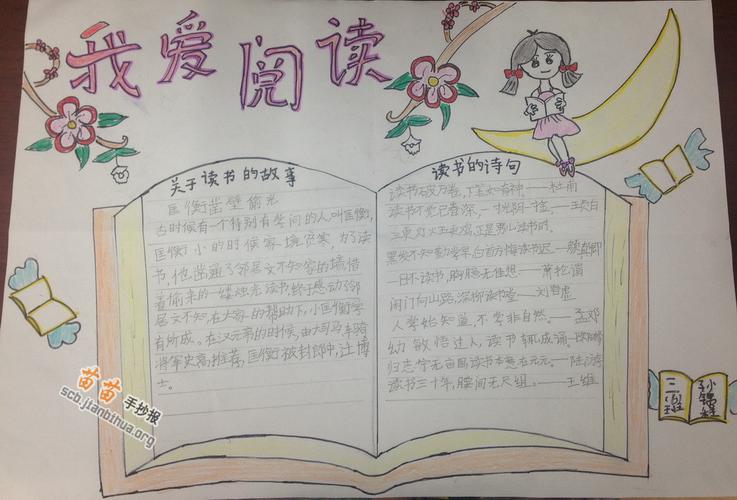 我爱阅读
关于读书的故事
匡衡凿壁偷光
古时候有一个特别有学问的人,叫匡衡,
匡衡小的时候家境贫寒,为了读
书,他凿通了邻居文不知家的墙,借
着偷来的一缕烛光读书,终于感动了邻
居文不知,在大家的帮助下,小匡衡学
有所成。在汉元帝的时候,由大司马、车骑
将军史高推荐,匡衡被封郎中,迁博
士。
读书的诗句
读书破万卷,下笔如有神。——杜甫
读书不觉已春深,一寸光阴一寸金。——王贞白
三更灯火五更鸡,正是男儿读书时。
黑发不知勤学早,白首方悔读书迟。——颜真卿
一日不读书,胸臆无佳想。——萧抡谓
闲门向山路,深柳读书堂。——刘昚虚
人学始知道,不学非自然。——孟郊
幼敏悟过人,读书辄成诵。
归志宁无五亩园,读书本意在元元。——陆游
读书三十年,腰间无尺组。——王维
三
班
孙
苗苗手抄报
scb.jianbihua.org